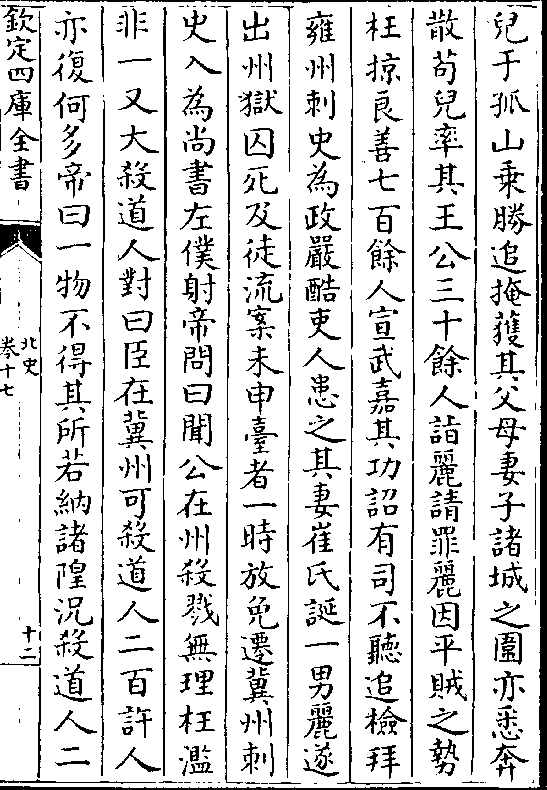 兒于孤山乗勝追掩獲其父母妻子諸城之圍亦悉奔
散苟兒率其王公三十餘人詣麗請罪麗因平賊之勢
枉掠良善七百餘人宣武嘉其功詔有司不聽追檢拜
雍州刺史為政嚴酷吏人患之其妻崔氏誕一男麗遂
出州獄囚死及徒流案未申臺者一時放免遷冀州刺
史入為尚書左僕射帝問曰聞公在州殺戮無理枉濫
非一又大殺道人對曰臣在冀州可殺道人二百許人
亦復何多帝曰一物不得其所若納諸隍況殺道人二
欽定四庫全書
北史
卷十七
十二